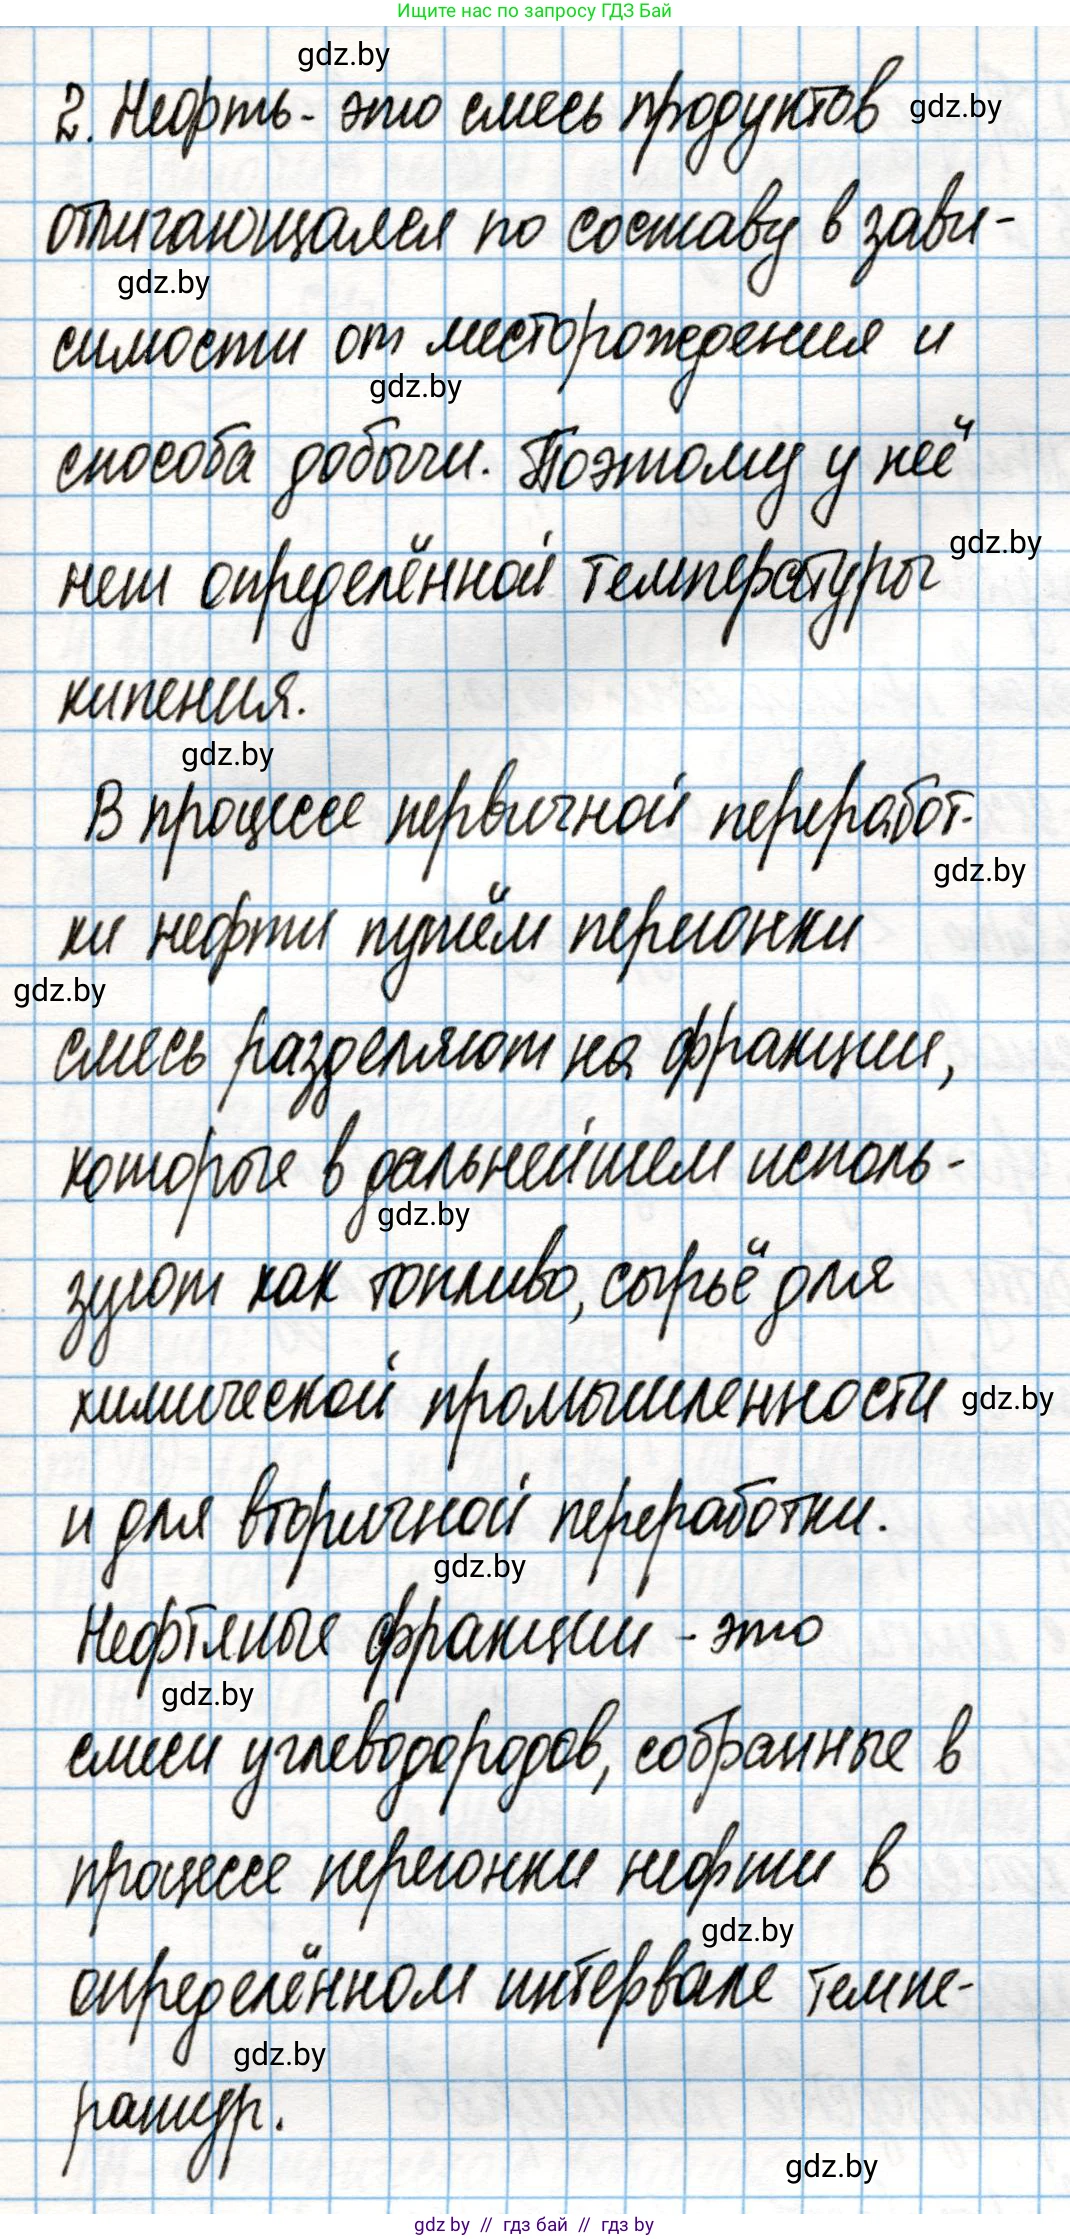 Ищите нас по запросу ГДЗ Бай
gdz.by
2. Нефть - это смесь продуктов gdz.by
отличающаяся по составу в зави-
gdz.by
симости от месторождения и
gdz.by
способа добычи. Поэтому у неё
gdz.by
нет определённой температуры
кипения.
gdz.by
В процессе первичной переработ-
gdz.by
ки нефти путём перегонки
gdz.by
смесь разделяют на фракции,
которые в дальнейшем исполь-
gdz.by
зуют как топливо, сырьё для
химической промышленности gdz.by
и для вторичной переработки.
gdz.by
Нефтяные фракции - это
gdz.by
смеси углеводородов, собранные в
процессе перегонки нефти в
gdz.by
определённом интервале темпе-
gdz.by
ратур.
gdz.by
gdz by // гдз бай // гдз by